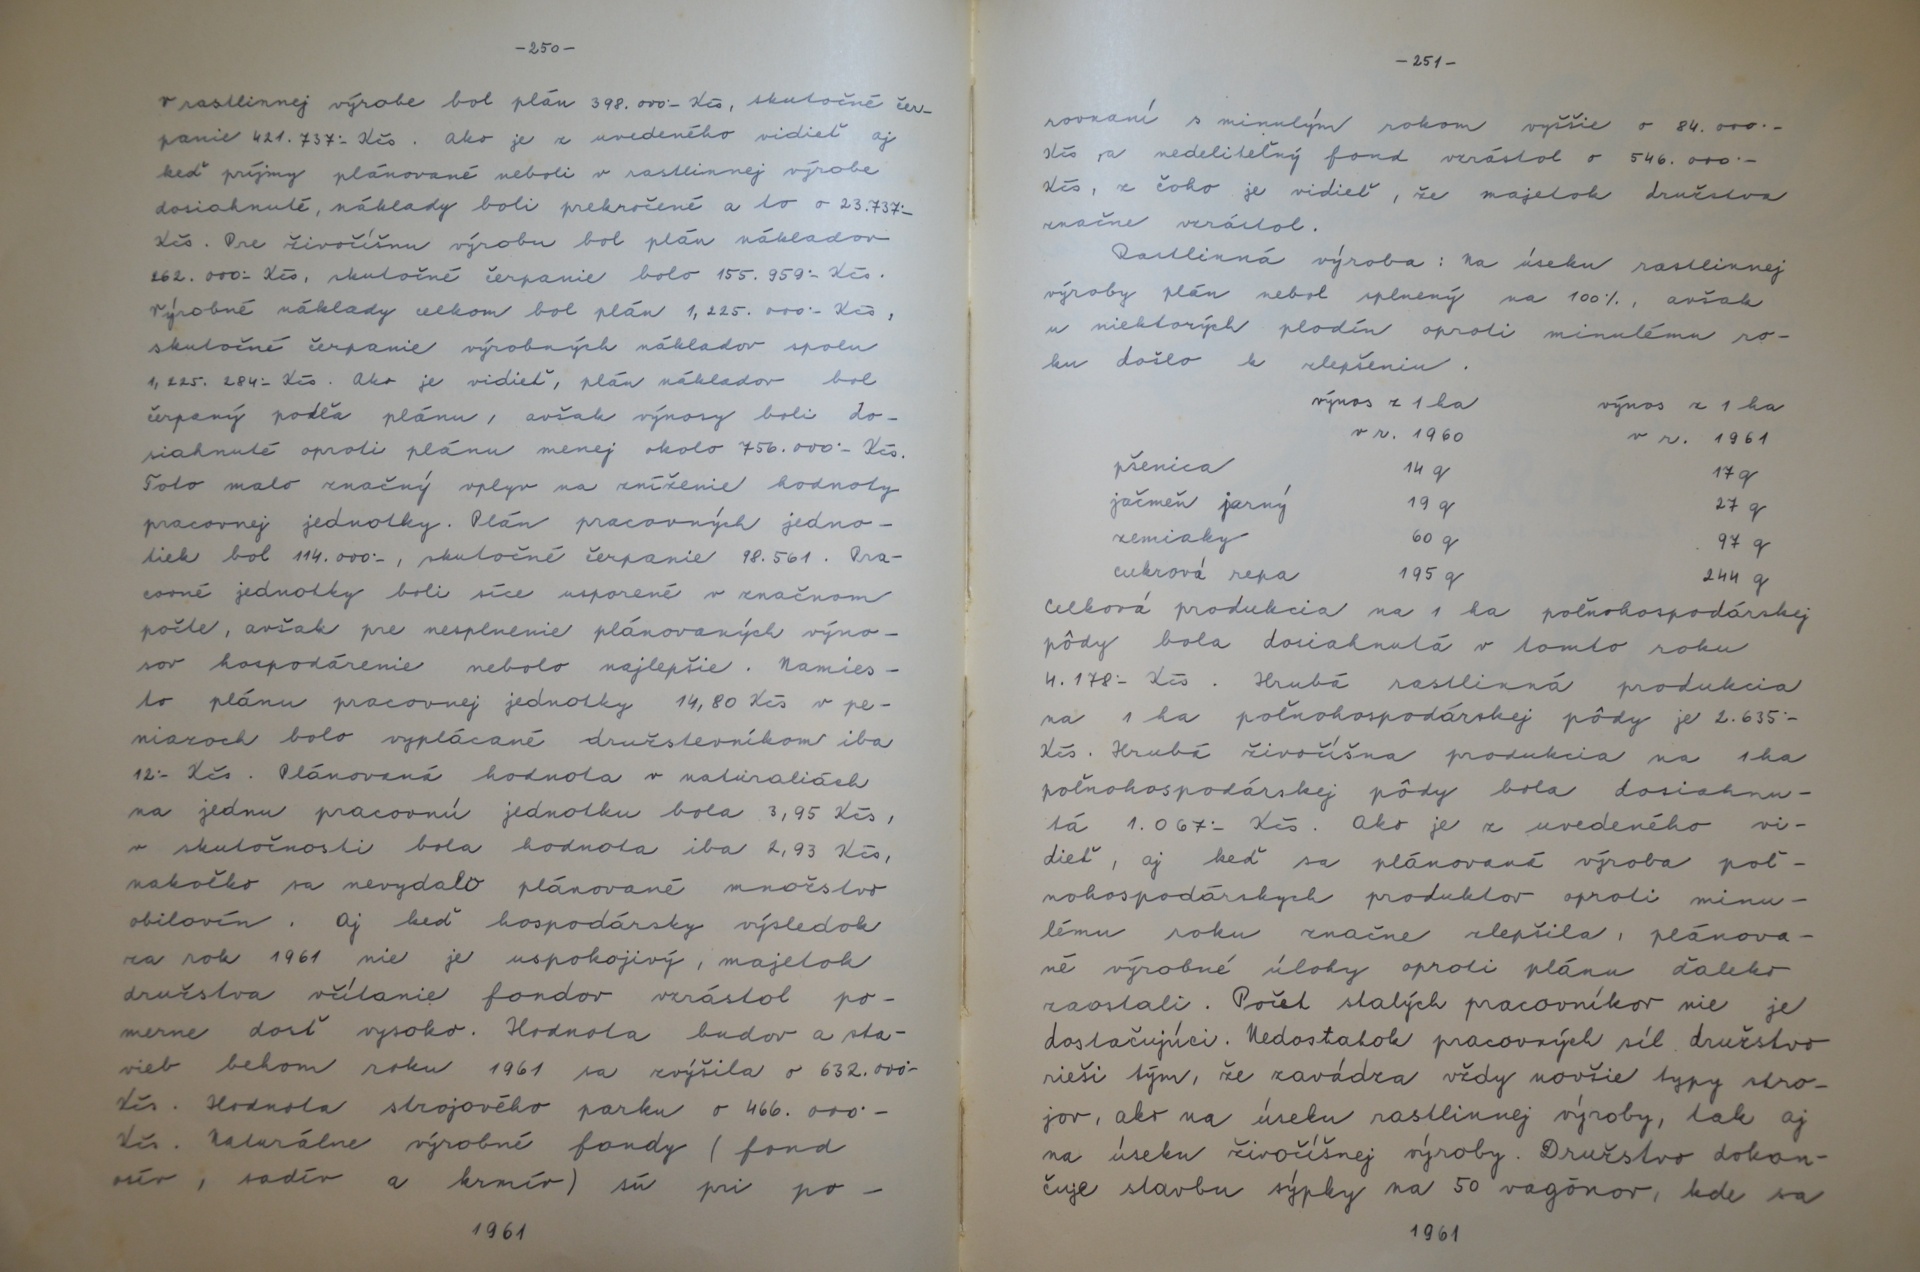 -250-
v rastlinnej výrobe bol plán 398.000:- Kčs, skutočné čer-
panie 421.737:- Kčs. Ako je z uvedeného vidieť aj
keď príjmy plánované neboli v rastlinnej výrobe
dosiahnuté, náklady boli prekročené a to o 23.737:-
Kčs. Pre živočíšnu výrobu bol plán nákladov
262.000:- Kčs, skutočné čerpanie bolo 155.959:- Kčs.
Výrobné náklady celkom bol plán 1,225.000:- Kčs,
skutočné čerpanie výrobných nákladov spolu
1,225.284:- Kčs. Ako je vidieť, plán nákladov bol
čerpaný podľa plánu, avšak výnosy boli do-
siahnuté oproti plánu menej okolo 756.000:- Kčs.
Toto malo značný vplyv na zníženie hodnoty
pracovnej jednotky. Plán pracovných jedno-
tiek bol 114.000:-, skutočné čerpanie 98.561. Pra-
covné jednotky boli síce usporené v značnom
počte, avšak pre nesplnenie plánovaných výno-
sov hospodárenie nebolo najlepšie. Namies-
to plánu pracovnej jednotky 14,80 Kčs v pe-
niazoch bolo vyplácané družstevníkom iba
12:- Kčs. Plánovaná hodnota v naturáliách
na jednu pracovnú jednotku bola 3,95 Kčs,
v skutočnosti bola hodnota iba 2,93 Kčs,
nakoľko sa nevydalo plánované množstvo
obilovín. Aj keď hospodársky výsledok
za rok 1961 nie je uspokojivý, majetok
družstva včítanie fondov vzrástol po-
merne dosť vysoko. Hodnota budov a sta-
vieb behom roku 1961 sa zvýšila o 632.000:-
Kčs. Hodnota strojového parku o 466.000:-
Kčs. Naturálne výrobné fondy (fond
osív, sadív a krmív) sú pri po-
1961
-251-
rovnaní s minulým rokom vyššie o 84.000:-
Kčs, a nedeliteľný fond vzrástol o 546.000:-
Kčs, z čoho je vidieť, že majetok družstva
značne vzrástol.
Rastlinná výroba: Na úseku rastlinnej
výroby plán nebol splnený na 100%, avšak
u niektorých plodín oproti minulému ro-
ku došlo k zlepšeniu.
výnos z 1 ha výnos z 1 ha
v r. 1960 v r. 1961
pšenica 14 q 17 q
jačmeň jarný 19 q 27 q
zemiaky 60 q 97 q
cukrová repa 195 q 244 q
Celková produkcia na 1 ha poľnohospodárskej
pôdy bola dosiahnutá v tomto roku
4.178:- Kčs. Hrubá rastlinná produkcia
na 1 ha poľnohospodárskej pôdy je 2.635:-
Kčs. Hrubá živočíšna produkcia na 1 ha
poľnohospodárskej pôdy bola dosiahnu-
tá 1.067:- Kčs. Ako je z uvedeného vi-
dieť, aj keď sa plánovaná výroba poľ-
nohospodárskych produktov oproti minu-
lému roku značne zlepšila, plánova-
né výrobné úlohy oproti plánu ďaleko
zaostali. Počet stalých pracovníkov nie je
dostačujúci. Nedostatok pracovných síl družstvo
rieši tým, že zavádza vždy novšie typy stro-
jov, ako na úseku rastlinnej výroby, tak aj
na úseku živočíšnej výroby. Družstvo dokon-
čuje stavbu sýpky na 50 vagónov, kde sa
1961